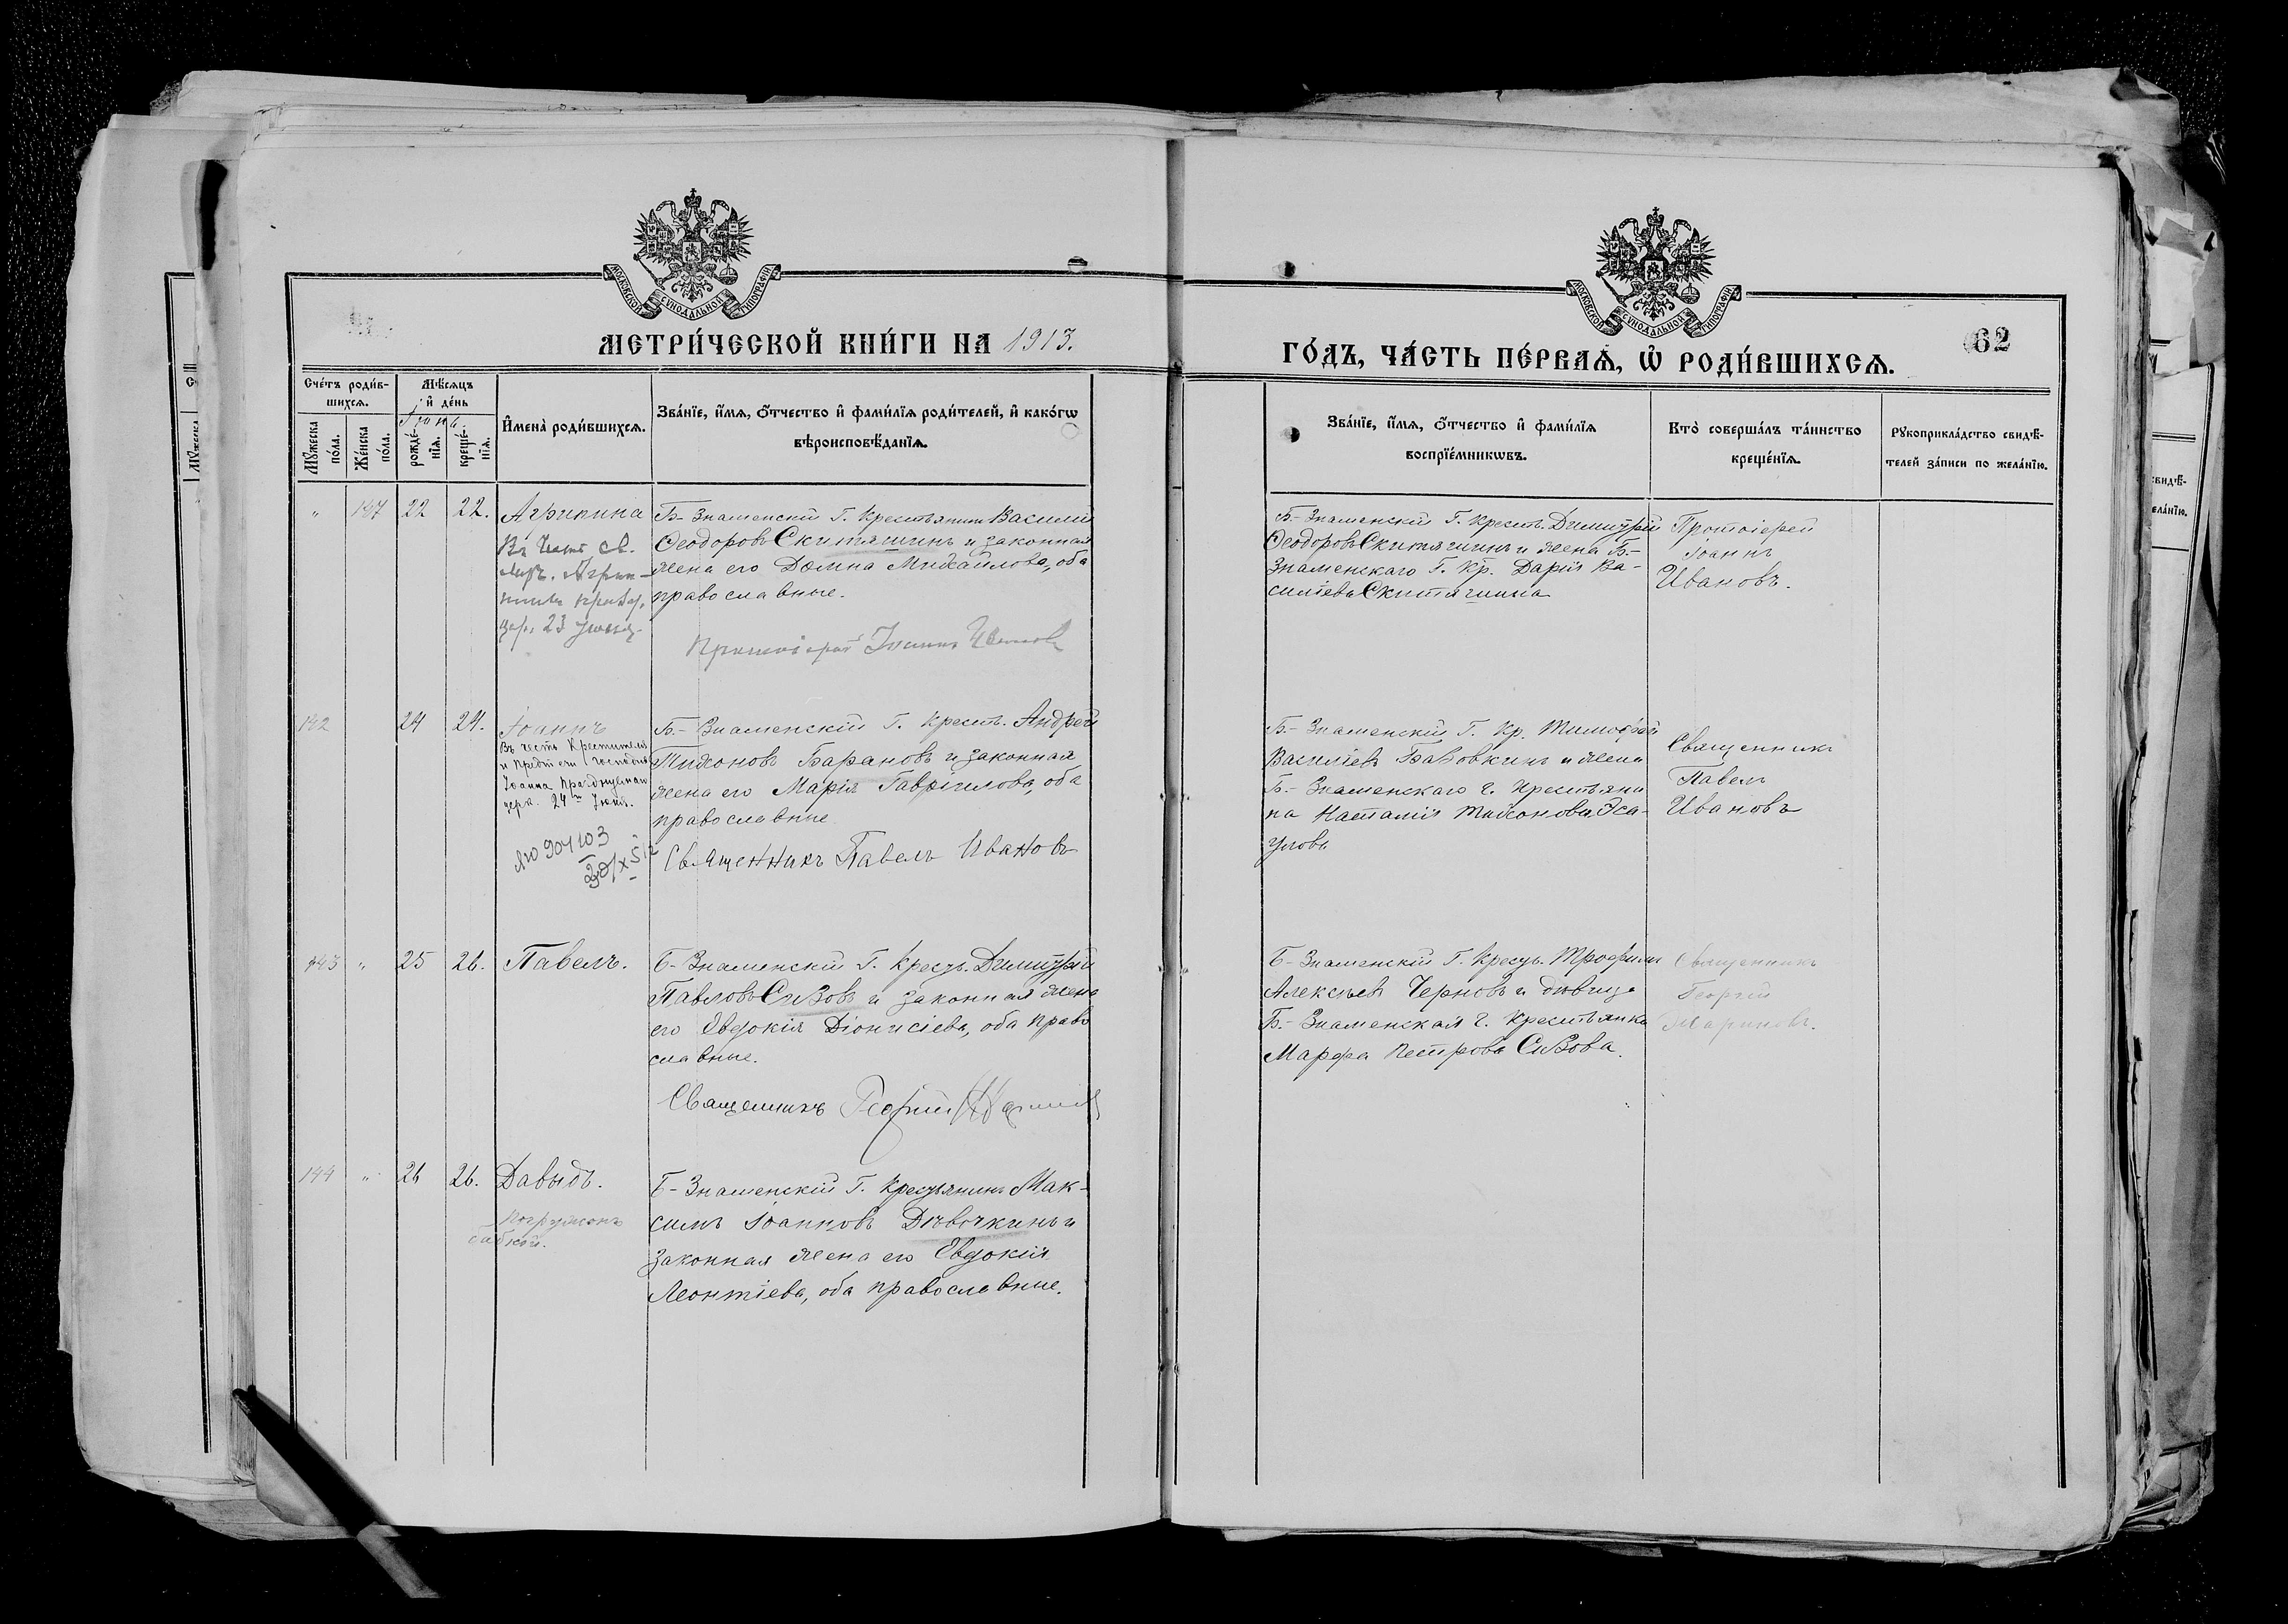 МОСКОВСКОЙ СѴНОДАЛЬНОЙ ТИПОГРАФІИ
МЕТРИ́ЧЕСКОЙ КНИ́ГИ НА 1913.
Сче́тъ роди́в-
шихсѧ.
Мѣсѧцъ
и҆ де́нь
Іюнь.
Мꙋ́жеска
по́ла.
Же́нска
по́ла.
рожде́-
нїѧ.
креще́-
нїѧ.
И҆мена̀ роди́вшихсѧ.
Зва́нїе, и҆́мѧ, ѻ҆́тчество и҆ фами́лїѧ роди́телей, и҆ како́гѡ
вѣроисповѣ́данїѧ.
„ 147 22 22. Агрипина
Въ честь св.
23
Б-Знаменскій Г. Крестьянинъ Василій
Ѳеодоровъ Скитяшинъ и законная
жена его Домна Михайлова, оба
православные.
Протоіерей Іоаннъ Ивановъ
142 24 24. Іоаннъ
Въ честь Крестителя
и Предтечи Господня
Іоанна
церк. 24го Іюня.
№ 904103
Б-Знаменскій Г. Крест. Андрей
Тихоновъ Барановъ и законная
жена его Марія Гавріилова, оба
православные
Священникъ Павелъ Ивановъ
143 „ 25 26. Павелъ.
Б-Знаменскій Г. Крест. Димитрій
Павловъ Сизовъ и законная жена
его Евдокія Діонисіева, оба право
славные.
Священникъ Георгій
144 „ 26 26. Давыдъ.
Погруженъ
бабкой.
Б-Знаменскій Г. Крестьянинъ Мак-
симъ Іоанновъ Дѣвочкинъ и
законная жена его Евдокія
Леонтіева, оба православные.
МОСКОВСКОЙ СѴНОДАЛЬНОЙ ТИПОГРАФІИ
ГО́ДЪ, ЧА́СТЬ ПЕ́РВАѦ, Ѡ҆ РОДИ́ВШИХСѦ.
62
Зва́нїе, и҆́мѧ, ѻ҆́тчество и҆ фами́лїѧ
воспрїе́мникѡвъ.
Кто̀ соверша́лъ та́инство
креще́нїѧ.
Рꙋкоприкла́дство свидѣ́-
телей за́писи по жела́нїю.
Б-Знаменскій Г. Крест. Димитрій
Ѳеодоровъ Скитяшинъ и жена Б-
Знаменскаго Г. Кр. Дарія Ва-
силіева Скитяшина
Протоіерей
Іоаннъ
Ивановъ.
Б-Знаменскій Г. Кр. Тимоѳей
Василіевъ Бабовкинъ и жена
Б-Знаменскаго г. Крестьяни
на Наталія Тихонова Эса-
улова
Священникъ
Павелъ
Ивановъ
Б-Знаменскій Г. Крест. Трофимъ
Алексѣевъ Черновъ и дѣвица
Б-Знаменская г. Крестьянка
Марѳа Петрова Сизова.
Священникъ
Георгій
Мариновъ.